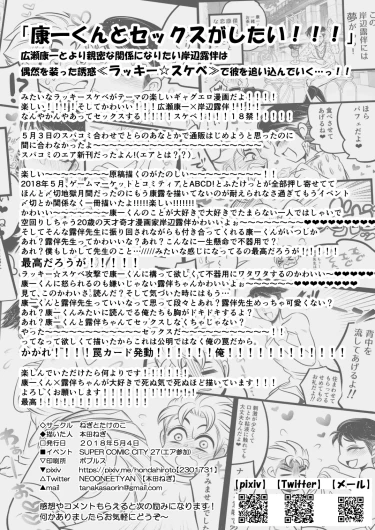 「康一くんとセックスがしたい！！！」
広瀬康一とより親密な関係になりたい岸辺露伴は
偶然を装った誘惑≪ラッキー☆スケベ≫で彼を追い込んでいく…っ！！
みたいなラッキースケベがテーマの楽しいギャグエロ漫画だよ！！！！
楽しい！！！！そしてかわいい！！！広瀬康一×岸辺露伴！！！！！！
なんやかんやあってセックスする！！！！！スケベ！！！！１８禁！！！！！
５月３日のスパコミ合わせでとらのあなとかで通販はじめようと思ったのに
間に合わなかったよ
スパコミのエア新刊だったよん！(エアとは？？)
楽しい〜〜〜〜〜〜〜原稿描くのがたのしい〜〜〜〜〜〜〜
2018年５月、ゲームマーケットとコミティアとABCDにふたけっとが全部押し寄せてて
ほんと〆切地獄月間だったのにもう康露を描いてないのが耐えられなさ過ぎてもうイベント
〆切とか関係なく一冊描いたよ!!!!!楽しい!!!!!!!
かわい〜〜〜〜〜〜〜〜康一くんのことが大好きで大好きでたまらない一人ではしゃいで
空回りしちゃう20歳の天才奇才漫画家岸辺露伴かわいいよぉ
そしてそんな露伴先生に振り回されながらも付き合ってくれる康一くんがいつしか
あれ？露伴先生ってかわいいな？あれ？こんなに一生懸命で不器用で？
あれ？僕もしかして先生のこと…/////みたいな感じになってるの最高だろうが！！！！！
最高だろうが！！/！！！
ラッキー☆スケベ攻撃で康一くんに構って欲しくて不器用にワタワタするのかわいい
康一くんに怒られるのも嫌いじゃない露伴ちゃんかわいいよ
見て、このかわいさ、読んだ？そして気づいた時にはもう…！
康一くんと露伴先生っていいなって思って段々とあれ？露伴先生めっちゃ可愛くない？
あれ？康一くんみたいに読んでる俺たちも胸がドキドキするよ？
あれ？康一くんと露伴ちゃんてセックスしなくちゃじゃない？
やった〜〜〜〜〜〜〜〜〜〜〜セックスだ〜〜〜〜〜〜〜！！
ってなって欲しくて描いたからこれは公明ではなく俺の罠だから。
かかれ！！！！罠カード発動！！！！！俺！！！！！！！！！！！
楽しんでいただけたら何よりです！！！！！！。
康一くん×露伴ちゃんが大好きで死ぬ気で死ぬほど描いています！！！
よろしくお願いします！！！！！
最高！
◇サークル　ねぎとたけのこ
◆描いた人　本田ねぎ
□発行日　２０１８年５月４日
■イベント　SUPER COMIC CITY 27(エア参加)
▽印刷所　ポプルス
▼pixiv　https://pixiv.me/hondahiroto【2301731】
△Twitter　NEOONEETYAN　【本田ねぎ】
▲mail　tanakasaorin@gmail.com
感想やコメントもらえると次の励みになります！
何かありましたらお気軽にどうぞ〜
【pixiv】【Twitter】【メール】
背中を
流してあげるよ!!